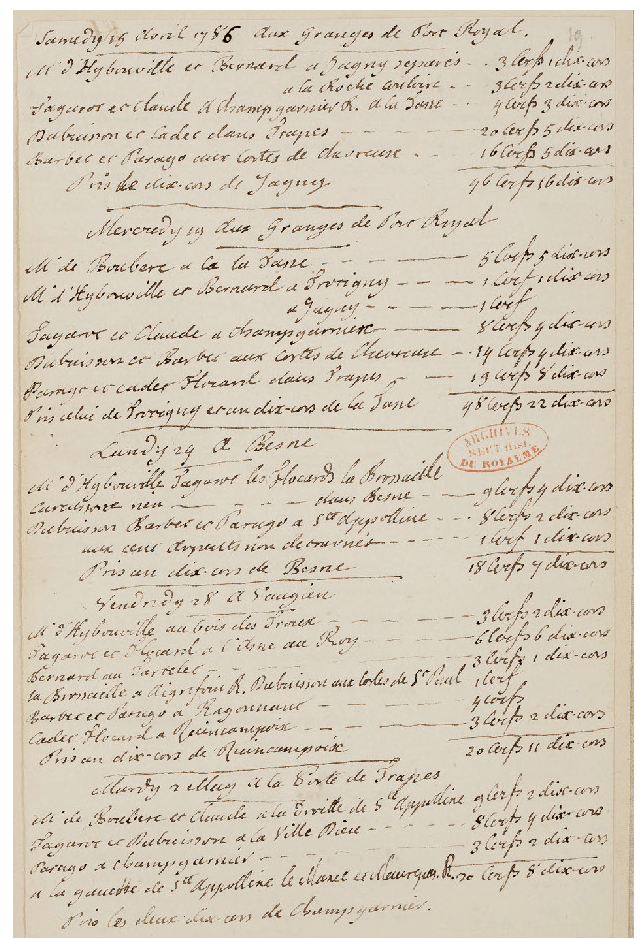 Samedy 15 Avril 1786 aux Granges de Port Royal.
19
Mr d'Hybouville et Bernard a Jagny separés - - 3 Cerfs 1 dix-cors
a la Roche - - 3 Cerfs 2 dix-cors
Lagarot et Claude a Champgarnier R. a la Fane - - 4 Cerfs 3 dix-cors
Dubuisson et Cadet dans Trapes - - - 20 Cerfs 5 dix-cors
Barbet et Parago aux Cortes de Chevreuse - 16 Cerfs 5 dix-cors
Pris le dix-cors de Jagny 46 Cerfs 16 dix-cors
Mercredy 19 aux Granges de Port Royal
Mr de Boubers a la la Fane - - - 5 Cerfs 5 dix-cors
Mr d'Hybouville et Bernard a Trovigny - - - 1 Cerf 1 dix-cors
a Jagny - - - 1 Cerf
Lagarot et Claude a Champgarnier - 8 Cerfs 4 dix-cors
Dubuisson et Barbet aux Cortes de Chevreuse - 14 Cerfs 4 dix-cors
Parago et Cadet Hocard dans Trapes - 19 Cerfs 8 dix-cors
Pris celui de Trovigny et au dix-cors de la Fane 48 Cerfs 22 dix-cors
Lundy 24 A Besne
ARCHIVES
SECT HIST.
DU ROYAUME
Mr d'Hybouville Lagarot les Hocards la Brossaille
dans Besne - - 9 Cerfs 4 dix-cors
Dubuisson Barbet et Parago a Ste Appolline - - 8 Cerfs 2 dix-cors
aux cent Arpents non detournés - - - 1 Cerf 1 dix-cors
Pris un dix-cors de Besne 18 Cerfs 7 dix-cors
Vendredy 28 A Vaugien
Mr d'Hybouville au bois des Troux - - - 3 Cerfs 2 dix-cors
Lagarot et Hocard a l'Asne au Roy - - - 6 Cerfs 6 dix-cors
Bernard au - - - 3 Cerfs 1 dix-cors
la Brossaille a Aigrefoin R. Dubuisson aux Cortes de St Paul 1 Cerf
Barbet et Parago a Ragonnant - - - 4 Cerfs
Cadet Hocard a Reincampoix - - - 3 Cerfs 2 dix-cors
Pris un dix-cors de Reincampoix 20 Cerfs 11 dix-cors
Mardy 2 May A la Porte de Trapes
Mr de Boubers et Claude a la Droitte de Ste Appolline 9 Cerfs 2 dix-cors
Lagarot et Dubuisson a la Ville Dieu - - - 8 Cerfs 4 dix-cors
Parago a Champgarnier - - - 3 Cerfs 2 dix-cors
a la gauche de Ste Appolline le Manet et Maurepas. R. 20 Cerfs 8 dix-cors
Pris les deux dix-cors de Champgarnier.